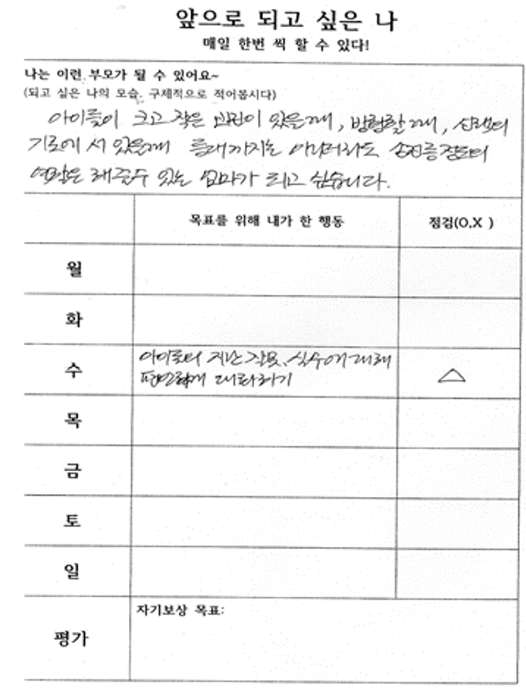 앞으로 되고 싶은 나
매일 한번 씩 할 수 있다!
나는 이런 부모가 될 수 있어요~
(되고 싶은 나의 모습. 구체적으로 적어봅시다)
아이들이 크고 작은 고민이 있을때, 방황할 때, 선택의
기로에 서 있을때 등대까지는 아니더라도 손전등정도의
역할은 해줄수 있는 엄마가 되고 싶습니다.
목표를 위해 내가 한 행동 점검(O,X )
월
화
수 아이들의 지난 잘못, 실수에 대해 △
편안하게 대화하기
목
금
토
일
평가 자기보상 목표: